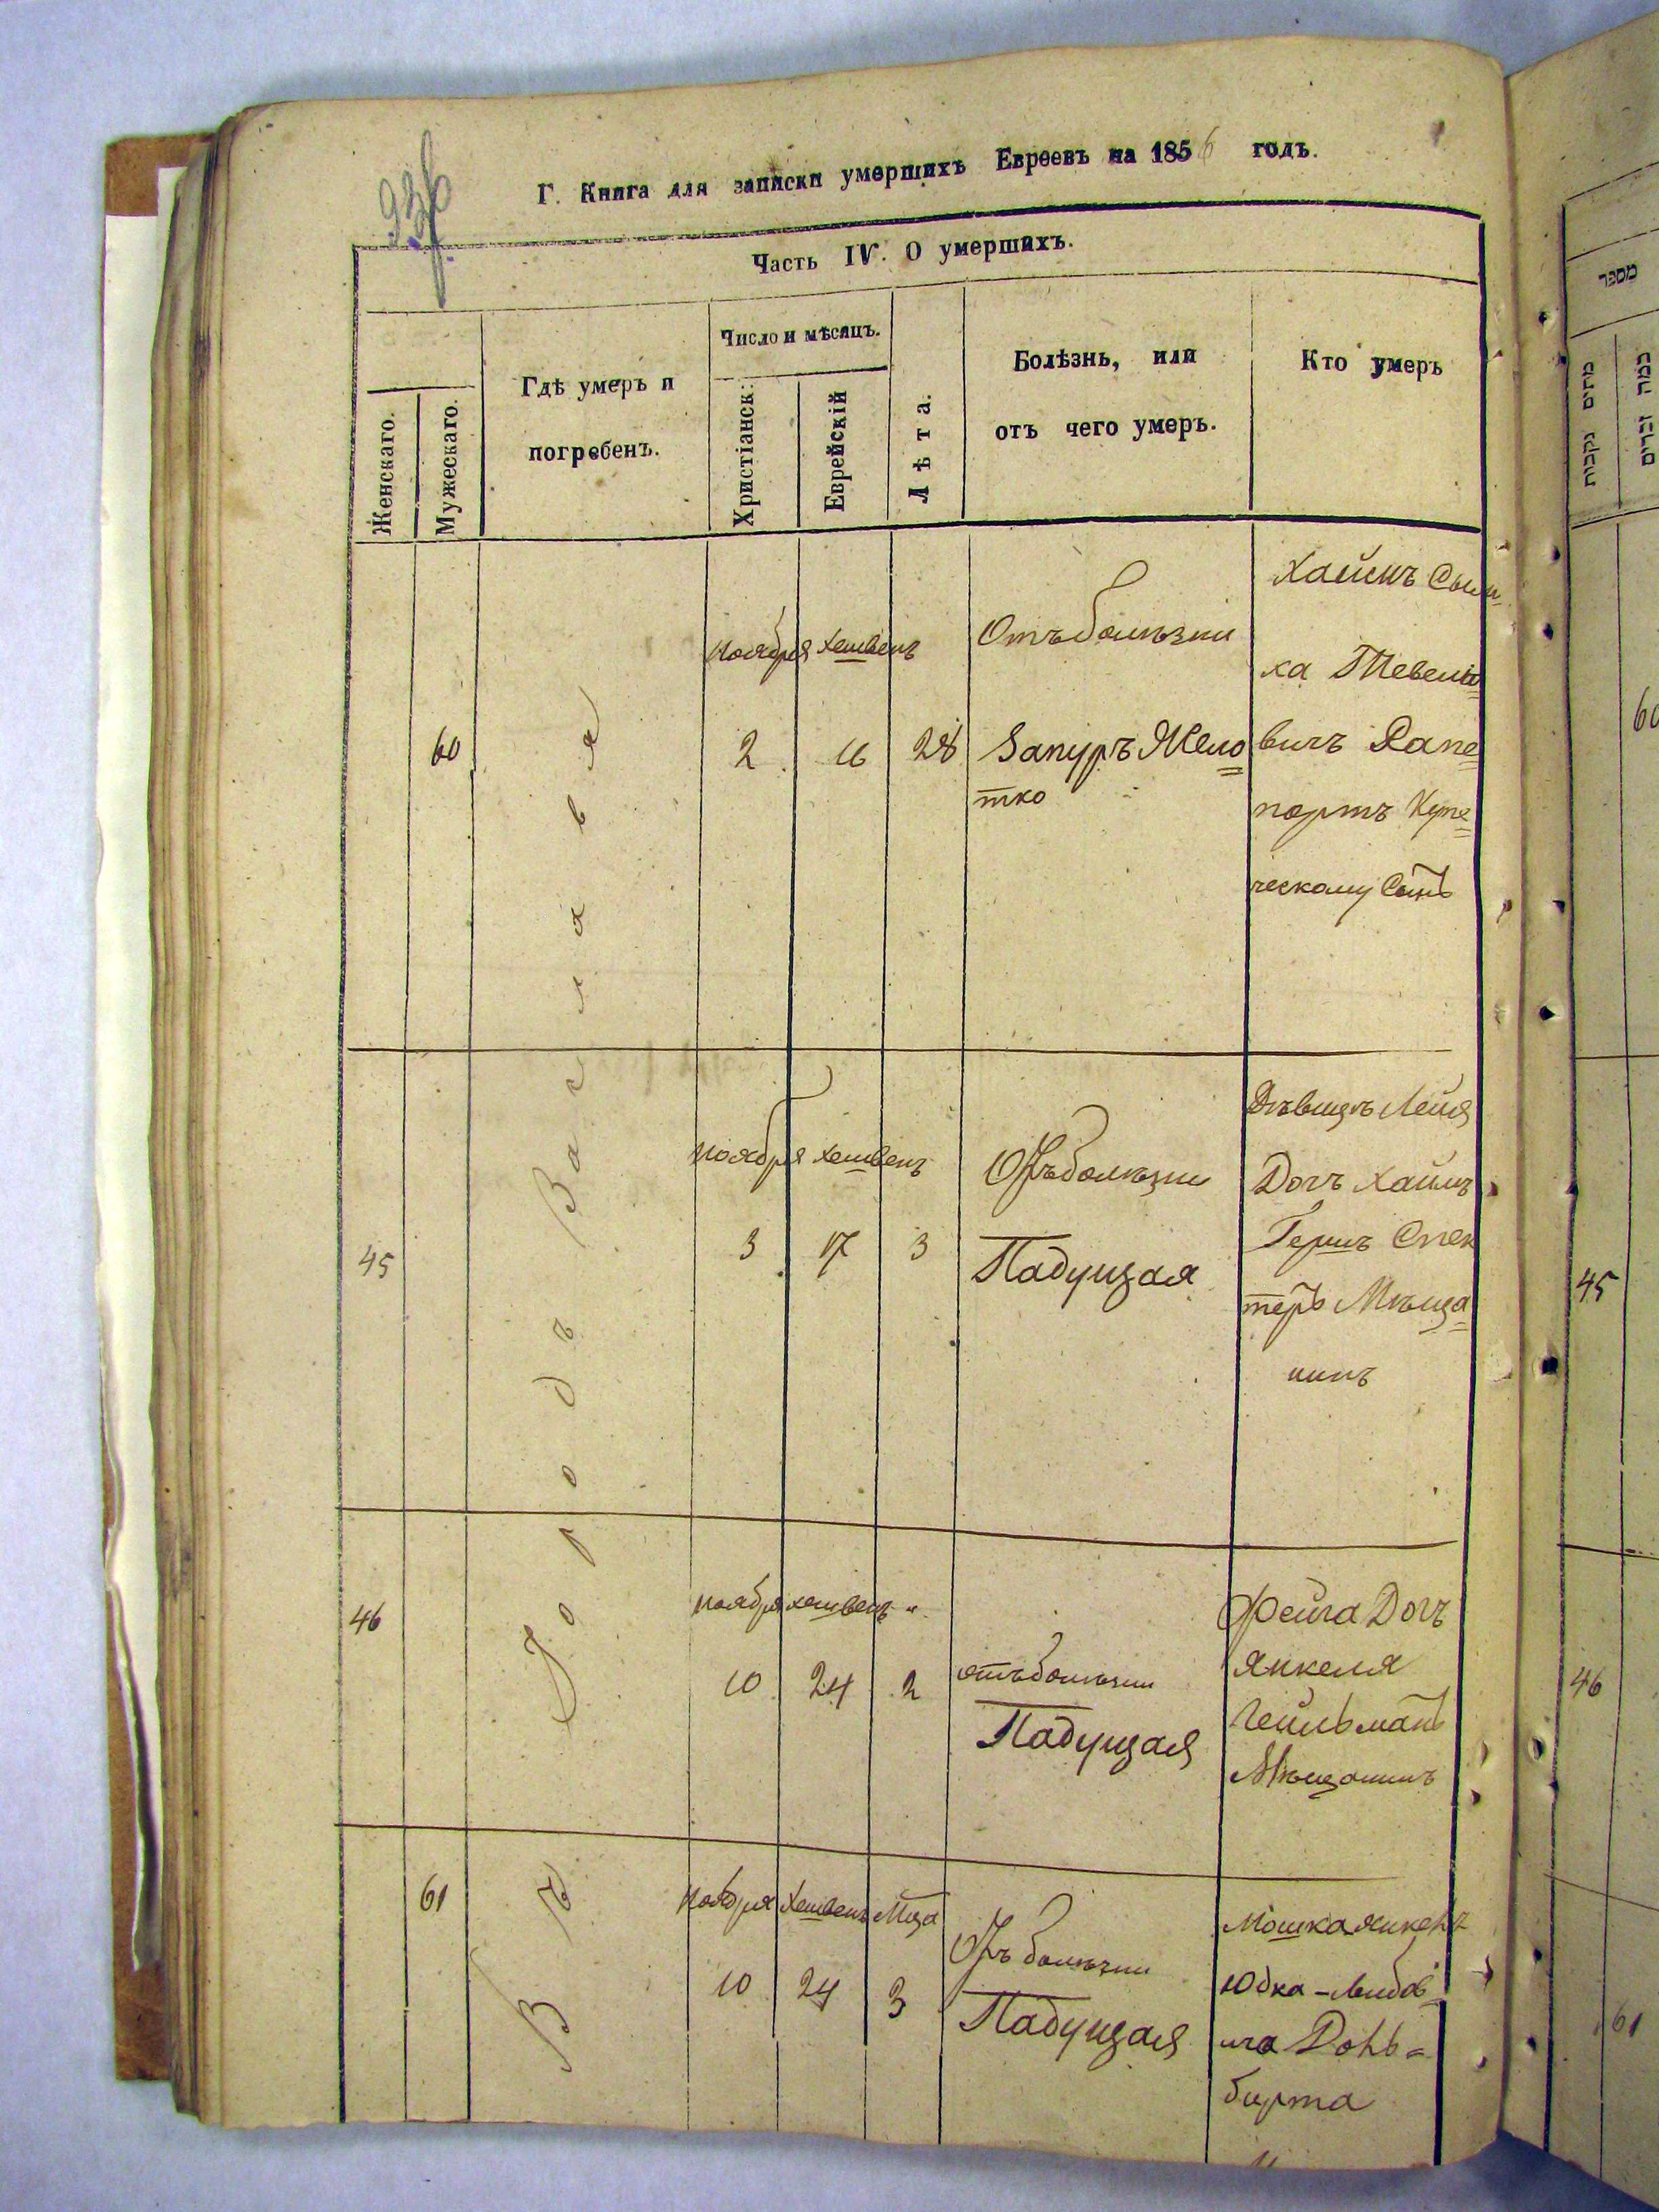 936
Г. Книга для записки умершихъ Евреевъ на 1856 годъ.
Часть IV. О умершихъ.
Женскаго.
Мужескаго.
Гдѣ умеръ и
погребенъ.
Число и мѣсяцъ.
Христіанск:
Еврейскій
Лѣта.
Болѣзнь, или
отъ чего умеръ.
Кто умеръ
Въ Городѣ
60
ноября хешвенъ
2 16 28
Отъ болѣзни
Запуръ Жело
тко
Хаимъ Сим
ха Тевель
вичъ Рапе
портъ Купе
ческому Сынъ
45
ноября хешвенъ
3 17 3
Отъ болѣзни
Падущая
Дѣвица Лейя
Дочъ Хаимъ
Гершъ Спек
теръ Мѣща
нинъ
46
ноября хешвенъ "
10 24 2
отъ болѣзни
Падущая
Фейга Дочъ
Янкеля
Мѣщанинъ
61
ноября хешвенъ Мца
10 24 3
Отъ болѣзни
Падущая
Мошка Янкель
Юдка-Лейбов
ича
бирта
מספר
כמה זכרים
מתים נקבות
60
45
46
61